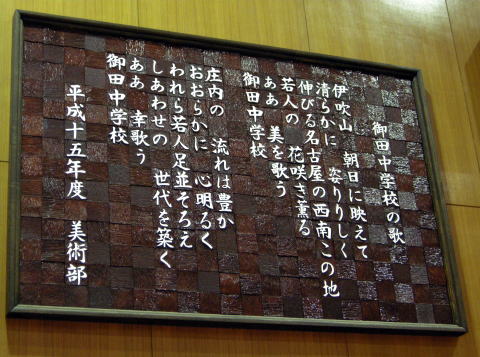 御田中学校の歌
伊吹山　朝日に映えて
清らかに　姿りりしく
伸びる名古屋の西南この地
若人の　花咲き薫る
ああ　美を歌う
御田中学校
庄内の　流れは豊か
おおらかに　心明るく
われら若人足並そろえ
しあわせの　世代を築く
ああ　幸歌う
御田中学校
平成十五年度　美術部